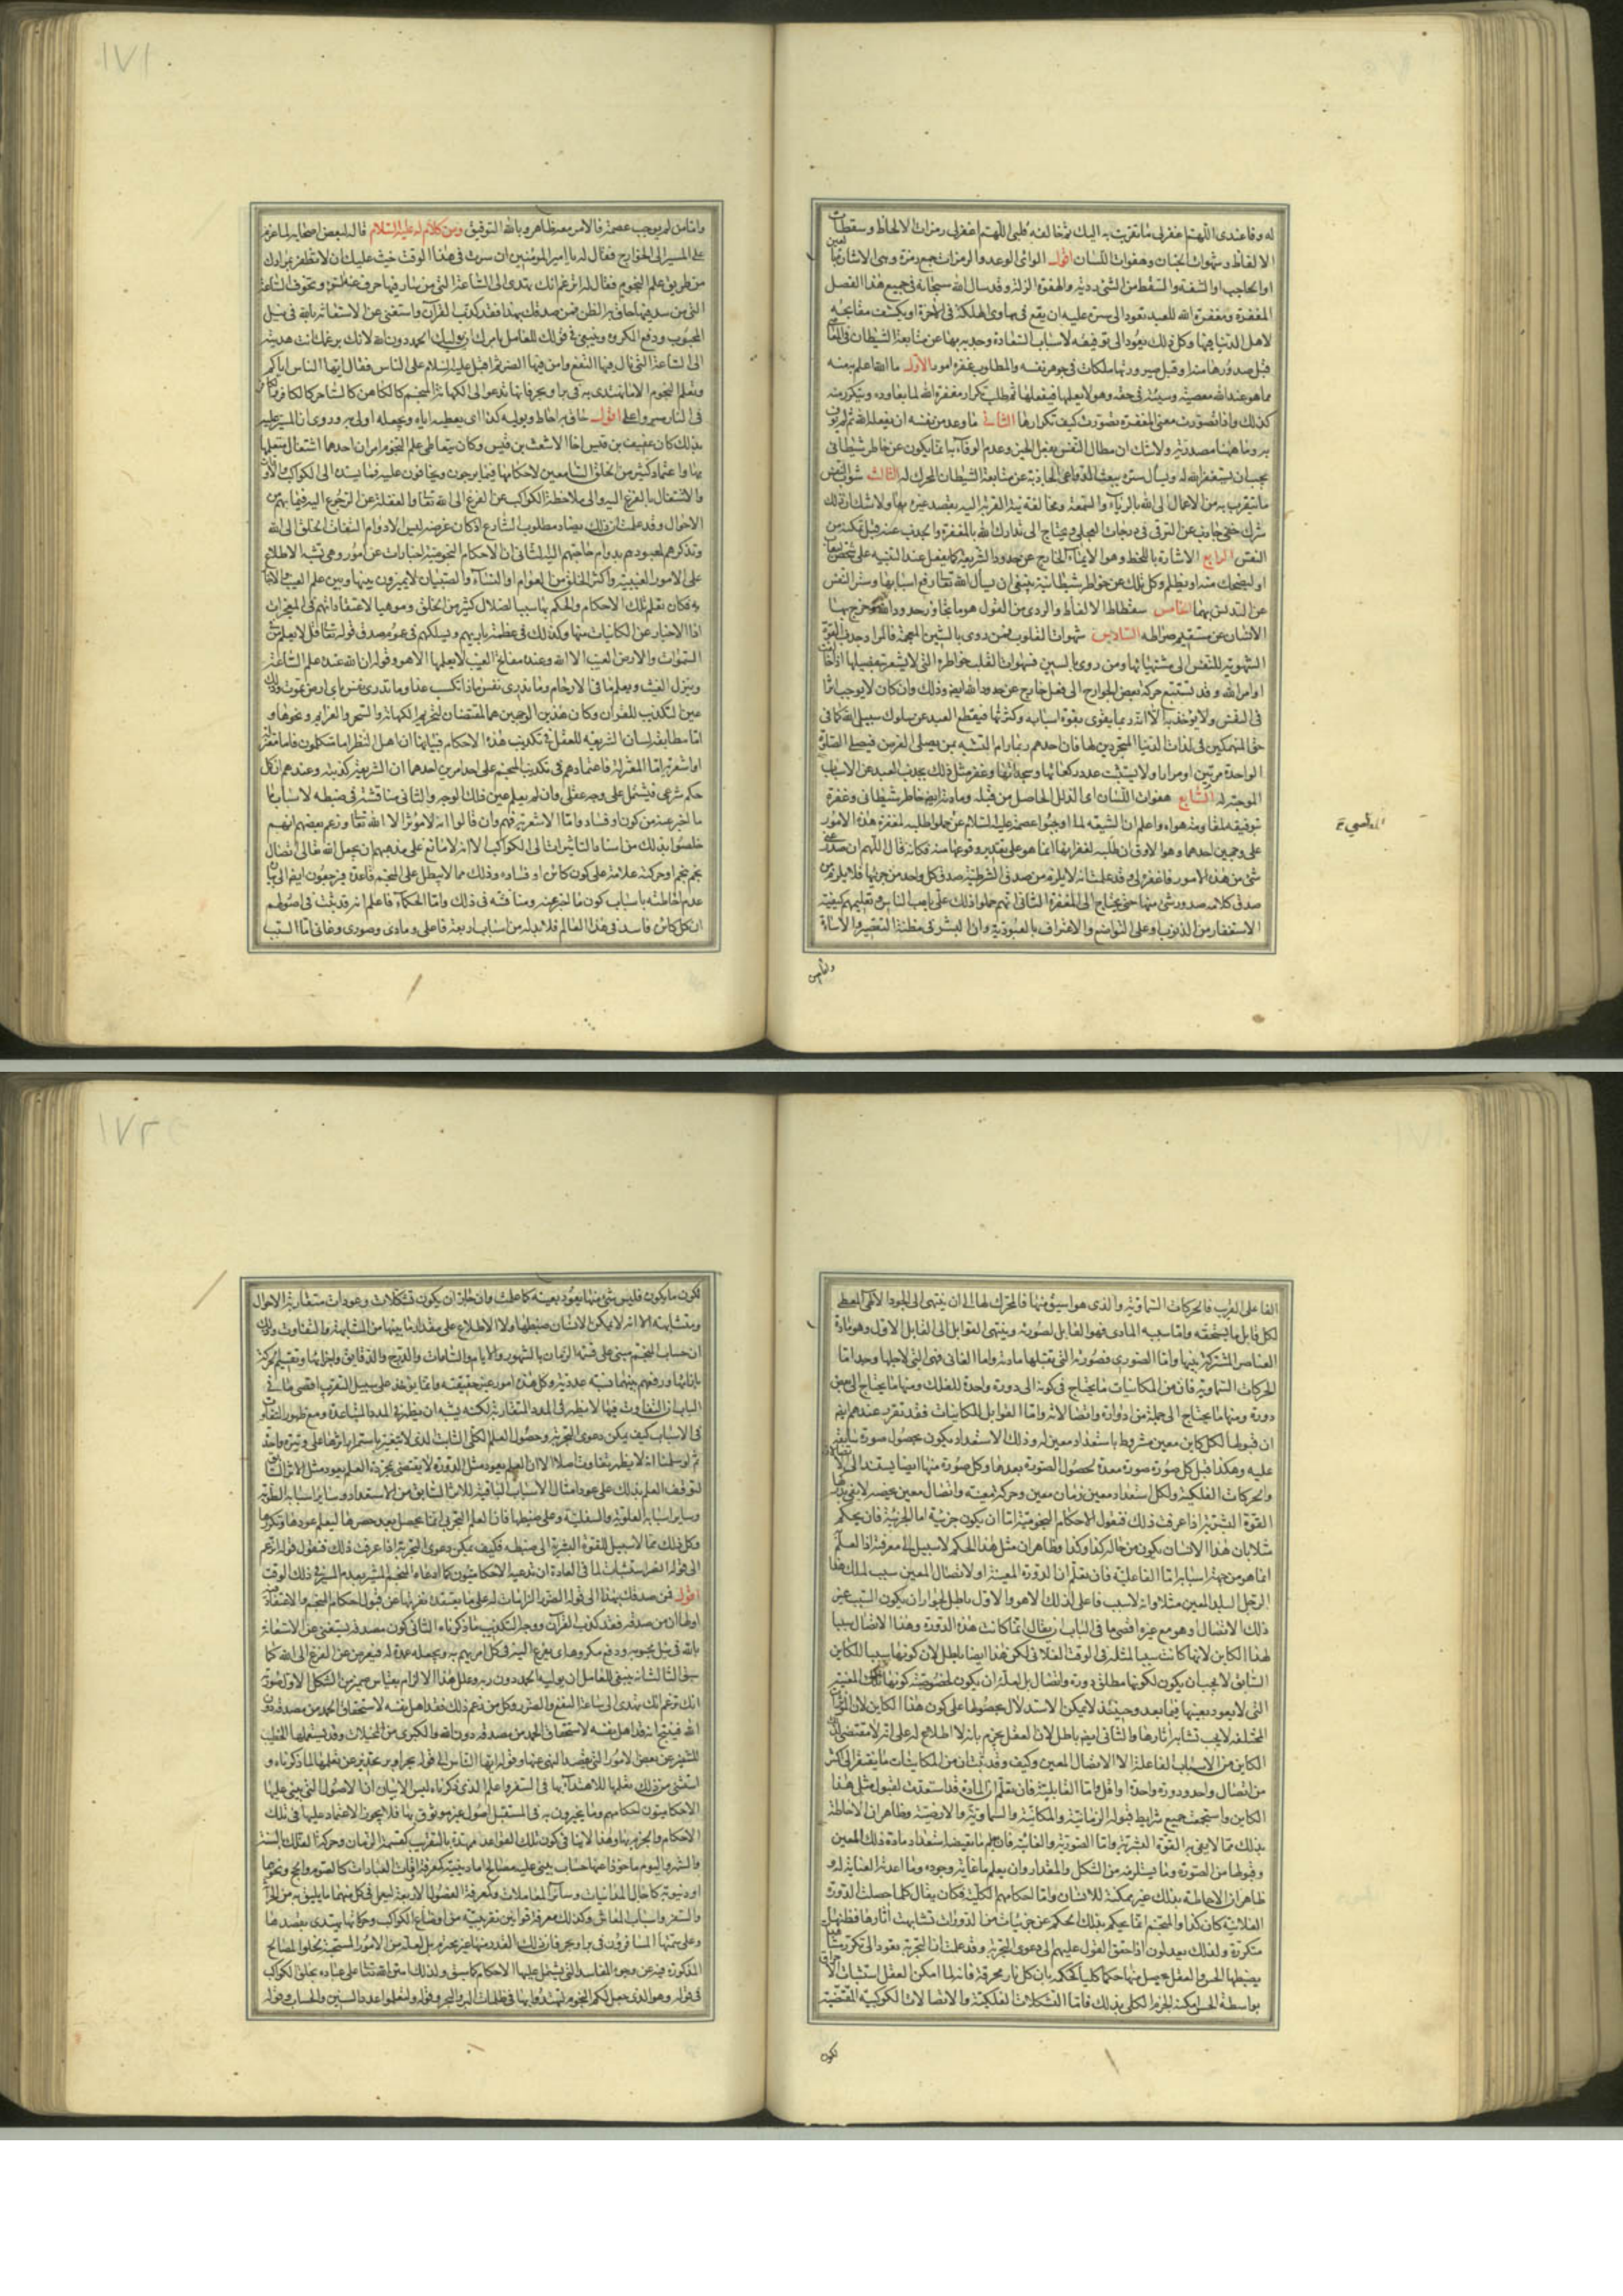 له وفا عندى اللهم اغفر لى ما تقربت به اليك ثم خالفه قلبى اللهم اغفر لى رمزات الالحاظ وسقطات
الالفاظ وشهوات الجنان وهفوات اللسان اقول الواى الوعد والرمزات جمع رمزة وهى الاشارة بالعين
او بالحاجب او الشفة والسقط من الشئ رديه والهفوة الزلة وقد سال الله سبحانه فى جميع هذا الفصل
المغفرة ومغفرة الله للعبد تعود الى ستره عليه ان يقع فى مهاوى الهلكة فى الآخرة او يكشف مقابحه
لاهل الدنيا فيها وكل ذلك يعود الى توفيقه لاسباب السعادة وجذبه بها عن متابعة الشيطان فى المعاصى
قبل صدورها منه او قبل صيرورتها ملكات فى جوهر نفسه والمطلوب غفره امور الاول ما الله اعلم به منه
مما هو عند الله معصية وسيئة فى حقه وهو لا يعلمها فيفعلها ثم طلب تكرار مغفرة الله لما يعاوده ويتكرر منه
كذلك واذا تصورت معنى المغفرة تصورت كيف تكرارها الثانى ما وعد من نفسه ان يفعله لله ثم لم يوف
به وما ههنا مصدرية ولا شك ان مطال النفس بفعل الخير وعدم الوفاء به انما يكون عن خاطر شيطانى
يجب ان يستغفر الله له ويسال ستره ببعث الدواعى الجاذبة عن متابعة الشيطان المحرك له الثالث شوائب النفس
ما يتقرب به من الاعمال الى الله بالرياء والسمعة ومخالفة نية القربة اليه بقصد غيره بها ولا شك ان ذلك
شرك خفى جاذب عن الترقى فى درجات العلى ويحتاج الى تدارك الله بالمغفرة والجذب عنه قبل تمكنه من
النفس الرابع الاشارة باللحظ وهو الايماء الخارج عن حدود الشريعة كما يفعل عند التنبيه على شخص
او ليضحك منه او يظلم وكل ذلك عن خواطر شيطانية ينبغى ان يسال الله تعالى رفع اسبابها وستر النفس
عن التدنس بها الخامس سقطات الالفاظ والردى من القول هو ما تجاوز حدود الله وخرج بها
الانسان عن مستقيم صراطه السادس شهوات القلوب فمن روى بالشين المعجمة فالمراد جذب القوة
الشهوية للنفس الى مشتهياتها ومن روى بالسين فسهوات القلب خواطره التى لا يشعر بتفصيلها اذا خالفت
اوامر الله وقد تستتبع حركة بعض الجوارح الى فعل خارج عن حدود الله ايضا وذلك وان كان لا يوجب اثرا
فى النفس ولا يؤخذ به الا انه ربما يقوى بقوة اسبابه وكثرتها فيقطع العبد عن سلوك سبيل الله كما فى
حق المنهمكين فى لذات الدنيا المتجردين لها فان احدهم ربما رام التشبه بمن يصلى الفرض فيصلى الصلاة
الواحدة مرتين او مرارا ولا يستثبت عدد ركعاتها وسجداتها وغفر مثل ذلك بجذب العبد عن الاسباب
الموجبة له السابع هفوات اللسان اى الزلل الحاصل من قبله ومادته ايضا خاطر شيطانى وغفره
توفيقه لمقاومته هواه واعلم ان الشيعة لما اوجبوا عصمته عليه السلام عن حملوا طلبه لمغفرة هذه الامور
على وجهين احدهما وهو الادق ان طلبه لغفرانها انما هو على تقدير وقوعها منه فكانه قال اللهم ان صدر عنى
شئ من هذه الامور فاغفره لى وقد علمت انه لا يلزم من صدق الشرطية صدق كل واحد من جزئيها فلا يلزم من
صدق كلامه صدور شئ منها حتى يحتاج الى المغفرة الثانى انهم حملوا ذلك على تاديب الناس وتعليمهم كيفية
الاستغفار من الذنوب وعلى التواضع والاعتراف بالعبودية وان البشر فى مظنة التقصير والاساءة
واما من
واما من لم يوجب عصمته فالامر معه ظاهر وبالله التوفيق ومن كلام له عليه السلام قاله لبعض اصحابه لما عزم
على المسير الى الخوارج فقال له يا امير المؤمنين ان سرت فى هذا الوقت خشيت عليك ان لا تظفر بمرادك
من طريق علم النجوم فقال له اتزعم انك تهتدى الى الساعة التى من سار فيها صرف عنه السوء وتخوف الساعة
التى من سار فيها حاق به الضر فمن صدقك بهذا فقد كذب القرآن واستغنى عن الاستعانة بالله فى نيل
المحبوب ودفع المكروه وينبغى فى قولك للعامل بامرك ان يوليك الحمد دون الله لانك بزعمك انت هديته
الى الساعة التى نال فيها النفع وامن فيها الضر ثم اقبل عليه السلام على الناس فقال ايها الناس اياكم
وتعلم النجوم الا ما يهتدى به فى بر او بحر فانها تدعو الى الكهانة المنجم كالكاهن والكاهن كالساحر والساحر كالكافر والكافر
فى النار سيروا على اقول حاق به احاط ويوليه كذا اى يعطيه اياه ويجعله اولى به وروى ان المشير عليه
بذلك كان عفيف بن قيس اخا الاشعث بن قيس وكان يتعاطى علم النجوم امران احدهما اشتغال متعلمها
بها واعتماد كثير من الخلق السامعين لاحكامها فيما يرجون ويخافون عليه فيما يسنده الى الكواكب والاوقات
والاشتغال بالفزع اليه والى ملاحظة الكواكب عن الفزع الى الله تعالى والغفلة عن الرجوع اليه فيما يهم من
الاحوال وقد علمت ان ذلك يضاد مطلوب الشارع اذ كان غرضه ليس الا دوام التفات الخلق الى الله
وتذكرهم لمعبودهم بدوام حاجتهم اليه الثانى ان الاحكام النجومية اخبارات عن امور وهى تشبه الاطلاع
على الامور الغيبية واكثر الخلق من العوام او النساء والصبيان لا يميزون بينها وبين علم الغيب والاخبار
به فكان تعلم تلك الاحكام والحكم بها سببا لضلال كثير من الخلق وموهنا لاعتقاداتهم فى المعجزات
اذ الاخبار عن الكائنات منها وكذلك فى عظمة باريهم ويسلكهم فى عموم صدق قوله تعالى قل لا يعلم من فى
السموات والارض الغيب الا الله وعنده مفاتح الغيب لا يعلمها الا هو وقوله ان الله عنده علم الساعة
وينزل الغيث ويعلم ما فى الارحام وما تدرى نفس ماذا تكسب غدا وما تدرى نفس باى ارض تموت وذلك
عين التكذيب للقران وكان هذين الوجهين هما المقتضيان لتحريم الكهانة والسحر والعزايم ونحوها و
اما مطابقة لسان الشريعة للعقل فى تكذيب هذه الاحكام فبيانها ان اهل النظر اما متكلمون فاما معتزلة
او اشعرية اما المعتزلة فاعتمادهم فى تكذيب المنجم على احد امرين احدهما ان الشريعة كذبته وعندهم ان كل
حكم شرعى فيشتمل على وجه عقلى وان لم يعلم عين ذلك الوجه والثانى مناقشة فى ضبطه لاسباب
ما اخبر عنه من كون او فساد واما الاشعرية فهم وان قالوا انه لا مؤثر الا الله تعالى وزعم بعضهم انهم
خلصوا بذلك من اسناد التاثيرات الى الكواكب الا انه لا مانع على مذهبهم ان يجعل الله تعالى اتصال
نجم بنجم او حركته علامة على كون كائن او فساده وذلك مما لا يبطل على المنجم قاعدة فيرجعون ايضا الى بيان
عدم احاطته باسباب كون ما اخبر عنه ومناقشته فى ذلك واما الحكماء فاعلم انه قد ثبت فى اصولهم
ان كل كائن فاسد فى هذا العالم فلا بد له من اسباب اربعة فاعلى ومادى وصورى وغائى اما السبب
الفاعلى القريب فالحركات السماوية والذى هو اسبق منها فالمحرك لها الى ان ينتهى الى الجود الالهى المعطى
لكل قابل ما يستحقه واما سببه المادى فهو القابل لصورته وينتهى القوابل الى القابل الاول وهو مادة
العناصر المشتركة بينها واما الصورى فصورته التى تقبلها مادته واما الغائى فهى التى لاجلها وجد اما
الحركات السماوية فان من الكائنات ما يحتاج فى كونه الى دورة واحدة للفلك ومنها ما يحتاج الى بعض
دورة ومنها ما يحتاج الى جملة من ادواره واتصالاته واما القوابل للكائنات فقد تقرر عندهم ايضا
ان قبولها لكل كاين معين مشروط باستعداد معين له وذلك الاستعداد يكون بحصول صورة سابقة
عليه وهكذا قبل كل صورة صورة معدة لحصول الصورة بعدها وكل صورة منها ايضا يستند الى الاتصالات
والحركات الفلكية ولكل استعداد معين زمان معين وحركة معينة واتصال معين يخصه لا يفى بدركها
القوة البشرية اذا عرفت ذلك فنقول الاحكام النجومية اما ان يكون جزئية اما الجزئية فان يحكم
مثلا بان هذا الانسان يكون من حاله كذا وكذا وظاهر ان مثل هذا الحكم لا سبيل الى معرفته اذ العلم
انما هو من جهة اسبابه اما الفاعلية فان يعلم ان الدورة المعينة او الاتصال المعين سبب لملك هذا
الرجل البلد المعين مثلا وانه لا سبب فاعلى لذلك الا هو والاول باطل لجواز ان يكون السبب غير
ذلك الاتصال او هو مع غيره اقصى ما فى الباب ان يقال انما كانت هذه الدورة وهذا الاتصال سببا
لهذا الكاين لانها كانت سببا لمثله فى الوقت الفلانى لكن هذا ايضا باطل لان كونها سببا للكاين
السابق لا يجب ان يكون لكونها مطلق دورة واتصال بل لعله ان يكون لخصوصية كونها تلك المعينة
التى لا يعود بعينها فيما بعد وحينئذ لا يمكن الاستدلال بحصولها على كون هذا الكاين لان المؤثرات
المختلفة لا يجب تشابه آثارها والثانى ايضا باطل لان العقل يجزم بانه لا اطلاع له على انه لا مقتضى لذلك
الكاين من الاسباب الفاعلة الا الاتصال المعين وكيف وقد ثبت ان من الكائنات ما يفتقر الى اكثر
من اتصال واحد ودورة واحدة او اقل واما القابلية فان يعلم ان المادة قد استعدت لقبول مثل هذا
الكاين واستجمعت جميع شرايط قبوله الزمانية والمكانية والسماوية والارضية وظاهر ان الاحاطة
بذلك مما لا يفى به القوة البشرية واما الصورية والغائية فان يعلم ما يقتضيه استعداد مادة ذلك المعين
وقبولها من الصورة وما يستلزمه من الشكل والمقدار وان يعلم ما غاية وجوده وما اعدته العناية له و
ظاهر ان الاحاطة بذلك غير ممكنة للانسان واما احكامهم الكلية فكان يقال كلما حصلت الدورة
الفلانية كان كذا والمنجم انما يحكم بذلك الحكم عن جزئيات من الدورات تشابهت آثارها فظنها
متكررة ولذلك يعدلون اذا حقق القول عليهم الى دعوى التجربة وقد علمت ان التجربة تعود الى تكرر مشاهدات
يضبطها الحس والعقل يحصل منها حكما كليا كحكمه بان كل نار محرقة فانه لما امكن العقل استثبات الاحراق
بواسطة الحس امكنه الجزم الكلى بذلك فاما التشكلات الفلكية والاتصالات الكوكبية المقتضية
لكون
لكون ما يكون فليس شئ منها يعود بعينه كما علمت وان جاز ان يكون تشكلات وعودات متقاربة الاحوال
ومتشابهة الا انه لا يمكن الانسان ضبطها ولا الاطلاع على مقدار ما بينها من المشابهة والتفاوت وذلك
ان حساب المنجم مبنى على قسمة الزمان بالشهور والايام والساعات والدرج والدقايق واجزائها وتقسيم الحركة
بازائها ورفعهم بينهما نسبة عددية وكل هذه امور غير حقيقية وانما يؤخذ على سبيل التقريب اقصى ما فى
الباب ان التفاوت فيها لا يظهر فى المدد المتقاربة لكنه يشبه ان يظهر فى المدد المتباعدة ومع ظهور التفاوت
فى الاسباب كيف يمكن دعوى التجربة وحصول العلم الكلى الثابت الذى لا يتغير باستمرار اثرها على وتيرة واحدة
ثم لو سلمنا انه لا يظهر تفاوت اصلا الا ان العلم بعود مثل الدورة لا يقتضى بمجرده العلم بعود مثل الاثر السابق
لتوقف العلم بذلك على عود امثال الاسباب الباقية للاثر السابق من الاستعداد وساير اسبابه
وساير اسبابه العلوية والسفلية وعلى ضبطها فان العلم التجربى انما يحصل بعد حصرها ليعلم عودها وتكررها
وكل ذلك مما لا سبيل للقوة البشرية الى ضبطه فكيف يمكن دعوى التجربة اذا عرفت ذلك فنقول قوله اتزعم
الى قوله الضر استثبات لما فى العادة ان يدعيه الاحكاميون كما ادعاه المنجم المشير بعدم المسير فى ذلك الوقت
اقول فمن صدقك بهذا الى قوله الضر الزامات له على ما يعتقده نفرتها عن قبول احكام المنجم والاعتقاد
اولها ان من صدقه فقد كذب القرآن ووجه التكذيب ما ذكرناه الثانى كون مصدقه يستغنى عن الاستعانة
بالله فى نيل محبوبه ودفع مكروهه اى يفزع اليه فى كل امر يهم به ويجعله عدة له فيعرض عن الفزع الى الله كما
سبق الثالث انه ينبغى للعامل ان يوليه الحمد دون ربه وعلل هذا الالزام بقياس ضمير من الشكل الاول صورته
انك تزعم انك تهدى الى ساعة النفع والضر وكل من زعم ذلك فقد اهل نفسه لاستحقاق الحمد من مصدقه دون
الله فينتج انه قد اهل نفسه لاستحقاق الحمد من مصدقه دون الله والكبرى من المخيلات وقد يستعملها الخطيب
للتنفير عن بعض الامور التى يقصد النهى عنها وقوله ايها الناس الى قوله بحر او بر تحذير عن تعلمها لما ذكرناه و
استثنى من ذلك تعلمها للاهتداء بها فى السفر واعلم الذى ذكرناه ليس الا بيان ان الاصول التى يبنى عليها
الاحكاميون احكامهم وما يخبرون به فى المستقبل اصول غير موثوق بها فلا يجوز الاعتماد عليها فى تلك
الاحكام والجزم بها وهذا لا ينافى كون تلك القواعد ممهدة بالتقريب كقسمة الزمان وحركة الفلك والسنة
والشهر واليوم ماخوذا عنها حساب يبنى عليه مصالح اما دينية كمعرفة اوقات العبادات كالصوم والحج ونحوهما
او دنيوية كآجال المداينات وساير المعاملات وكمعرفة الفصول الاربعة ليعمل فى كل منها ما يليق به من الحراثة
والسفر واسباب المعاش وكذلك معرفة قوانين تقريبية من اوضاع الكواكب وحركاتها يهتدى بقصدها
وعلى سمتها المسافرون فى بر او بحر فان ذلك القدر منها غير محرم بل لعله من الامور المستحبة لخلو المصالح
المذكورة فيه عن وجوه المفاسد التى يشتمل عليها الاحكام كما سبق ولذلك امتن الله تعالى على عباده بخلق الكواكب
فى قوله وهو الذى جعل لكم النجوم لتهتدوا بها فى ظلمات البر والبحر وقوله ولتعلموا عدد السنين والحساب وقوله
١٧١
١٧٢